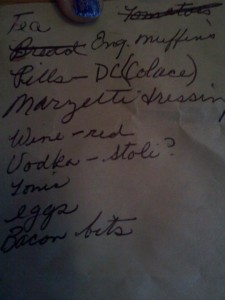 Tea Tomatoes
Bread Eng. muffins
Pills - DC (place)
Marzetti dressin
Wine - red
Vodka - Stoli?
Tonic
eggs
Bacon bits